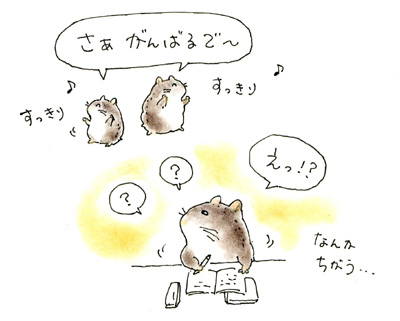 さぁ がんばるで～
♪
♪
すっきり
すっきり
えっ!?
?
?
なんか
ちがう...